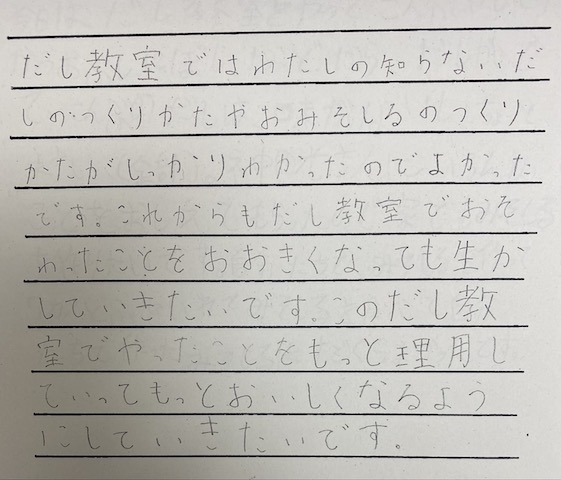 だし教室ではわたしの知らないだ
しのつくりかたやおみそしるのつくり
かたがしっかりわかったのでよかった
です。これからもだし教室でおそ
わったことをおおきくなっても生か
していきたいです。このだし教
室でやったことをもっと理用し
ていってもっとおいしくなるよう
にしていきたいです。